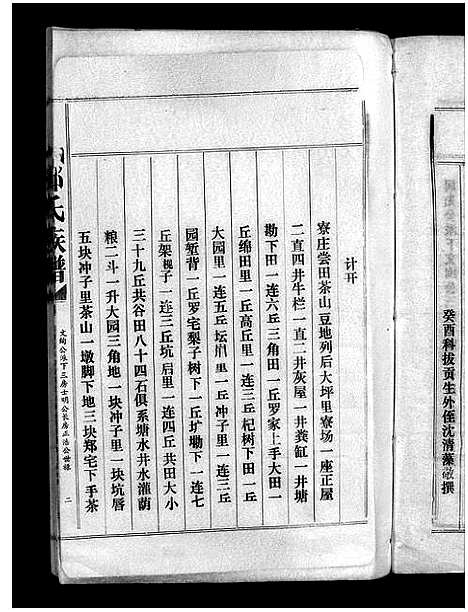 癸酉科拔贡生外侄沈清藻敬撰
计开
寮庄尝田茶山豆地列后大坪里寮场一座正屋
二直四井牛栏一直二井灰屋一井粪缸一井塘
勘下田一连六丘三角田一丘罗家上手大田一
丘绵田里一丘高丘里一连三丘杞树下田一丘
大园里一连五丘坛㘵里一丘冲子里一连三丘
园堑背一丘罗宅梨子树下一丘圹墈下一连七
丘架枧子一连三丘坑启里一连四丘共田大小
三十九丘共谷田八十四石俱系塘水井水灌荫
粮二斗一升大园三角地一块冲子里一块坑唇
五块冲子里茶山一墩脚下地三块郑宅下手茶
氏族谱
文绚公派下三房士明公长房正浩公世录
二